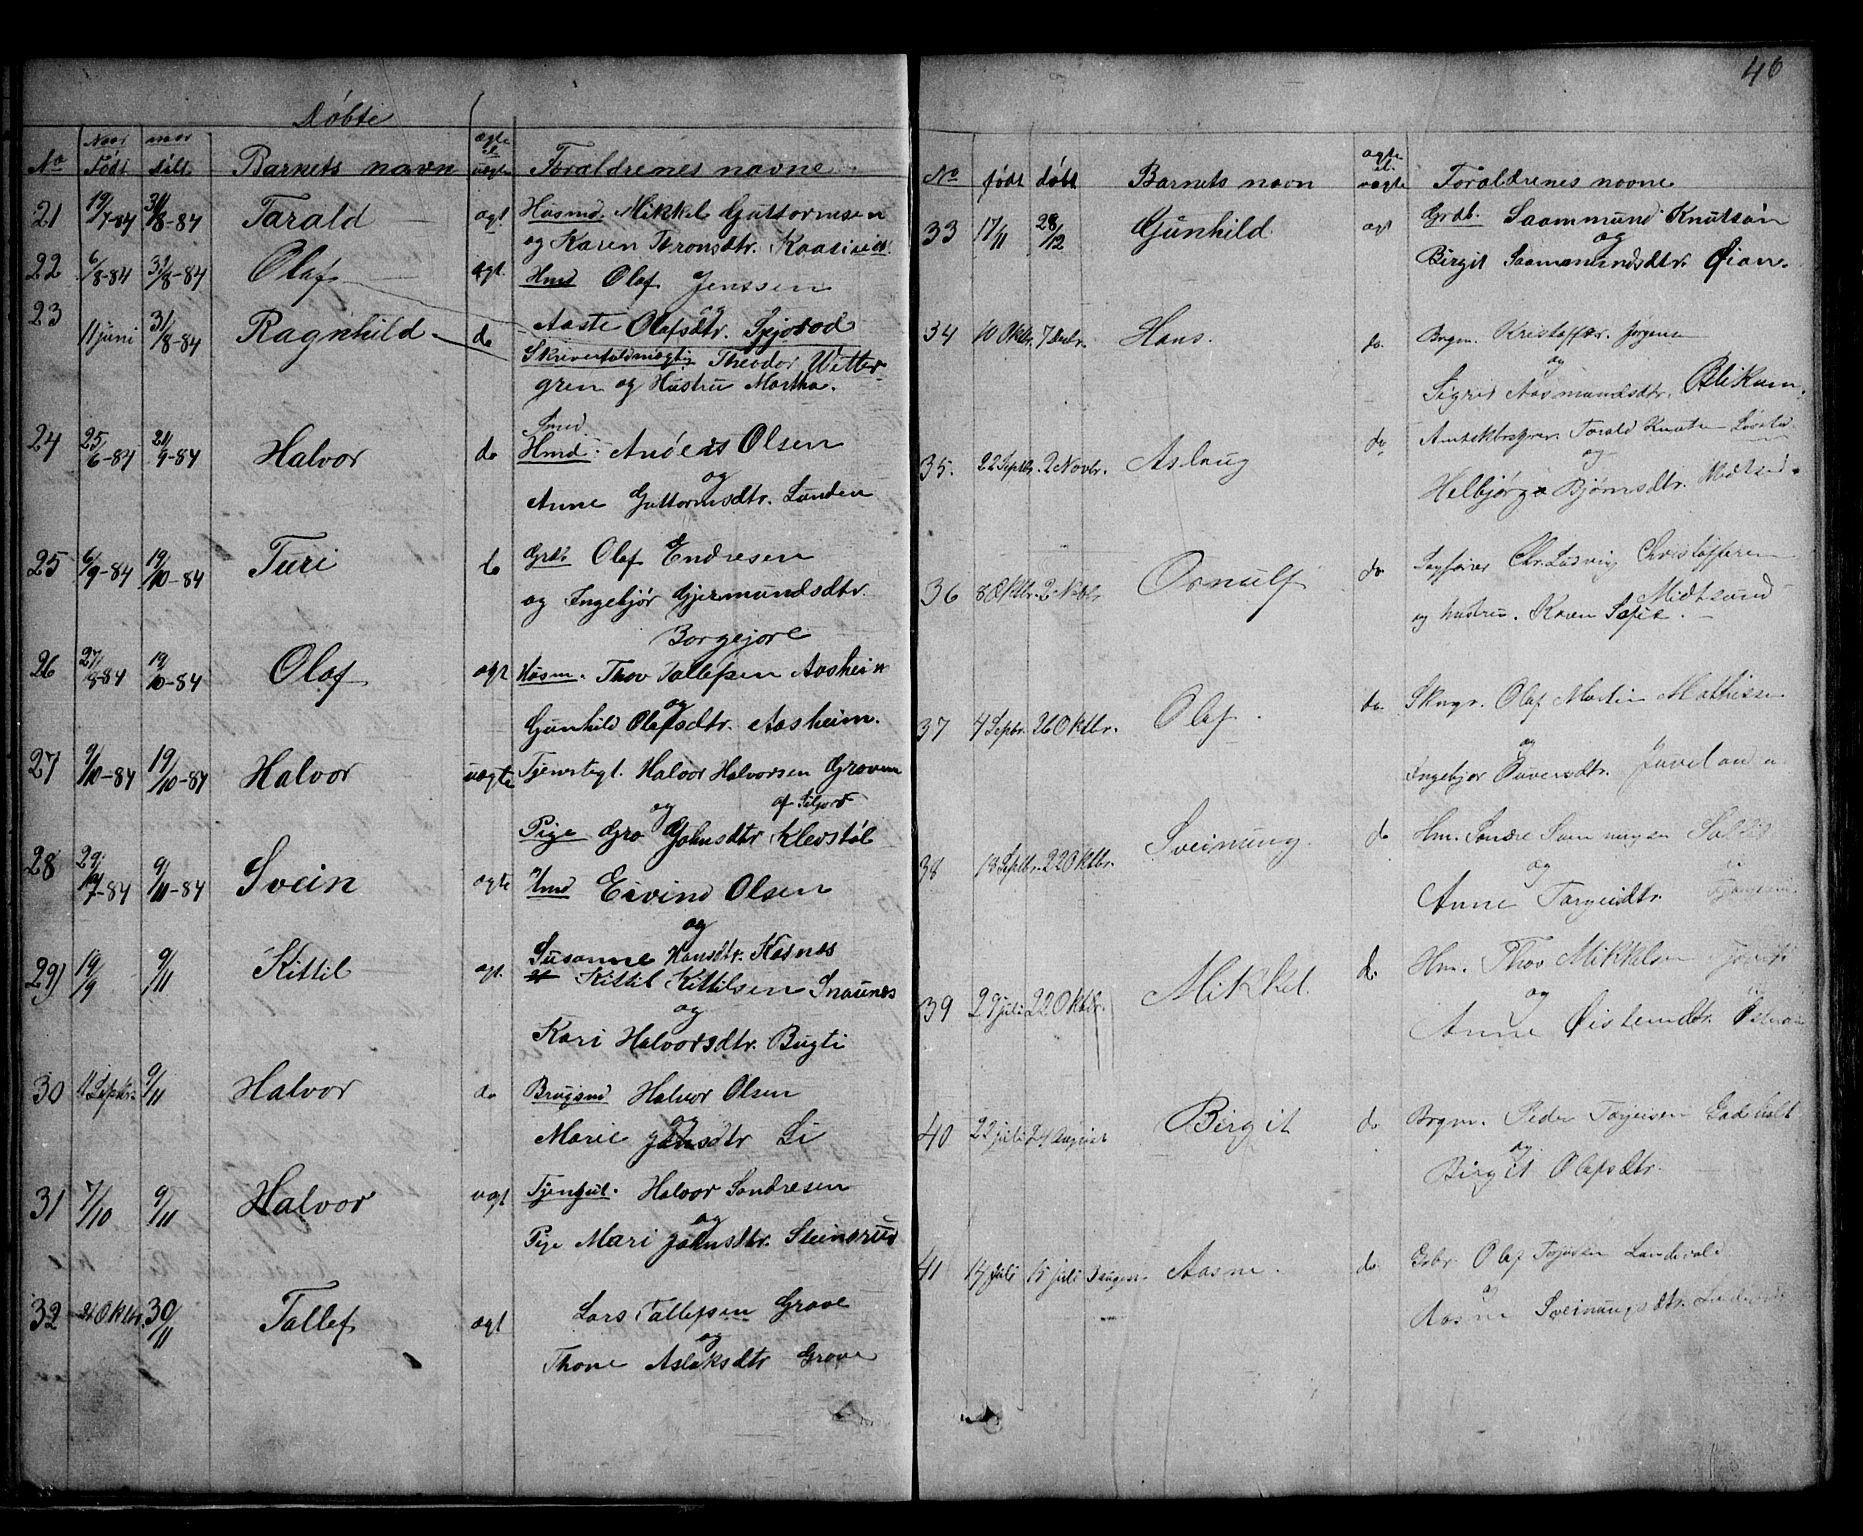 Døbte
No Naar Født naar døbt Barnets navn ægte el. uægte Forældrenes navne
21 19/7-84 31/8-84 Tarald ægt. Husmd. Mikkel Guttormsen
og Karen Thronsdtr. Kaasine
22 6/8-84 31/8-84 Olaf ægt. Hmd Olaf Jenssen
og
Aaste Olafsdtr.
23 11 juni 31/8-84 Ragnhild do Skriverfuldmægtig Theodor Wetter-
gren og Hustru Martha.
24 25/6-84 21/9-84 Halvor do Smed
Hmd. Anders Olsen
og
Anne Guttormsdtr. Lunden
25 6/9-84 19/10-84 Turi do Grdb. Olaf Endresen
og Ingebjør Gjermundsdtr.
Borgejore
26 27/8-84 19/10-84 Olaf ægt Husm. Thov Tallefsen Aasheim
og
Gunhild Olafsdtr. Aasheim.
27 9/10-84 19/10-84 Halvor uægte Tjenstegt. Halvor Halvorsen Groven
og af Siljord
Pige Gro Johnsdtr Klevstøl
28 29/7-84 9/11-84 Svein ægte Hmd Eivind Olsen
og
Susanne Hansdtr. Kasnæs
29) 19/9 9/11 Kittil ægt. Kittil Kittilsen Snaunæs
og
Kari Halvorsdtr. Bugti
30 11 Septbr. 9/11 Halvor do Brugsmd Halvor Olsen
og
Marie Johnsdtr Li
31 7/10 9/11 Halvor uægt Tjengut. Halvor Sondresen
og
Pige Mari Johnsdtr. Steinsrud
32 21 Oktbr. 30/11 Tallef ægt Lars Tallefsen Grave
og
Thone Aslaksdtr Grave
46
No født døbt Barnets navn ægte el. uægte Forældrenes navne
33 17/11 28/12 Gunhild ægt Grdb. Saammund Knutsøn
og
Birgit Saammundsdtr. Øian.
34 10 Oktbr. 7 Decbr. Hans. do. Brgm. Kristoffer. Jørgensen
og
Sigrid Aasmundsdtr. Blikam.
35. 22 Septbr. 2 Novbr. Aslaug do Tarald Knutsen
og
Helbjørg Bjørnsdtr. Midtsund.
36 8 Oktbr. 2 Novbr Ornulf do. Sagfører Chr. Ludvig Christoffersen
Midtsund
og hustru. Karen Sofie.
37 4 Septbr. 26 Oktbr. Olaf. do. Olaf Martin Mathisen
og
Ingebjør
38 13 Septbr. 22 Oktbr. Sveinung. do Hm. Sondre
og
Anne Targeirdtr.
39 29 juli 22 Oktbr. Mikkel. do. Hm. Thov Mikkelsen
og
Anne Øisteindtr.
40 22 juli 24 August Birgit do. Brgm. Peder Torjeisen
og
Birgit Olafsdtr.
41 14 juli 15 juli Aasne. do. Olaf
og
Aasne Sveinungsdtr.